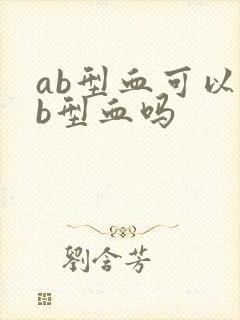 ab型血可以
b型血吗
劉含芳